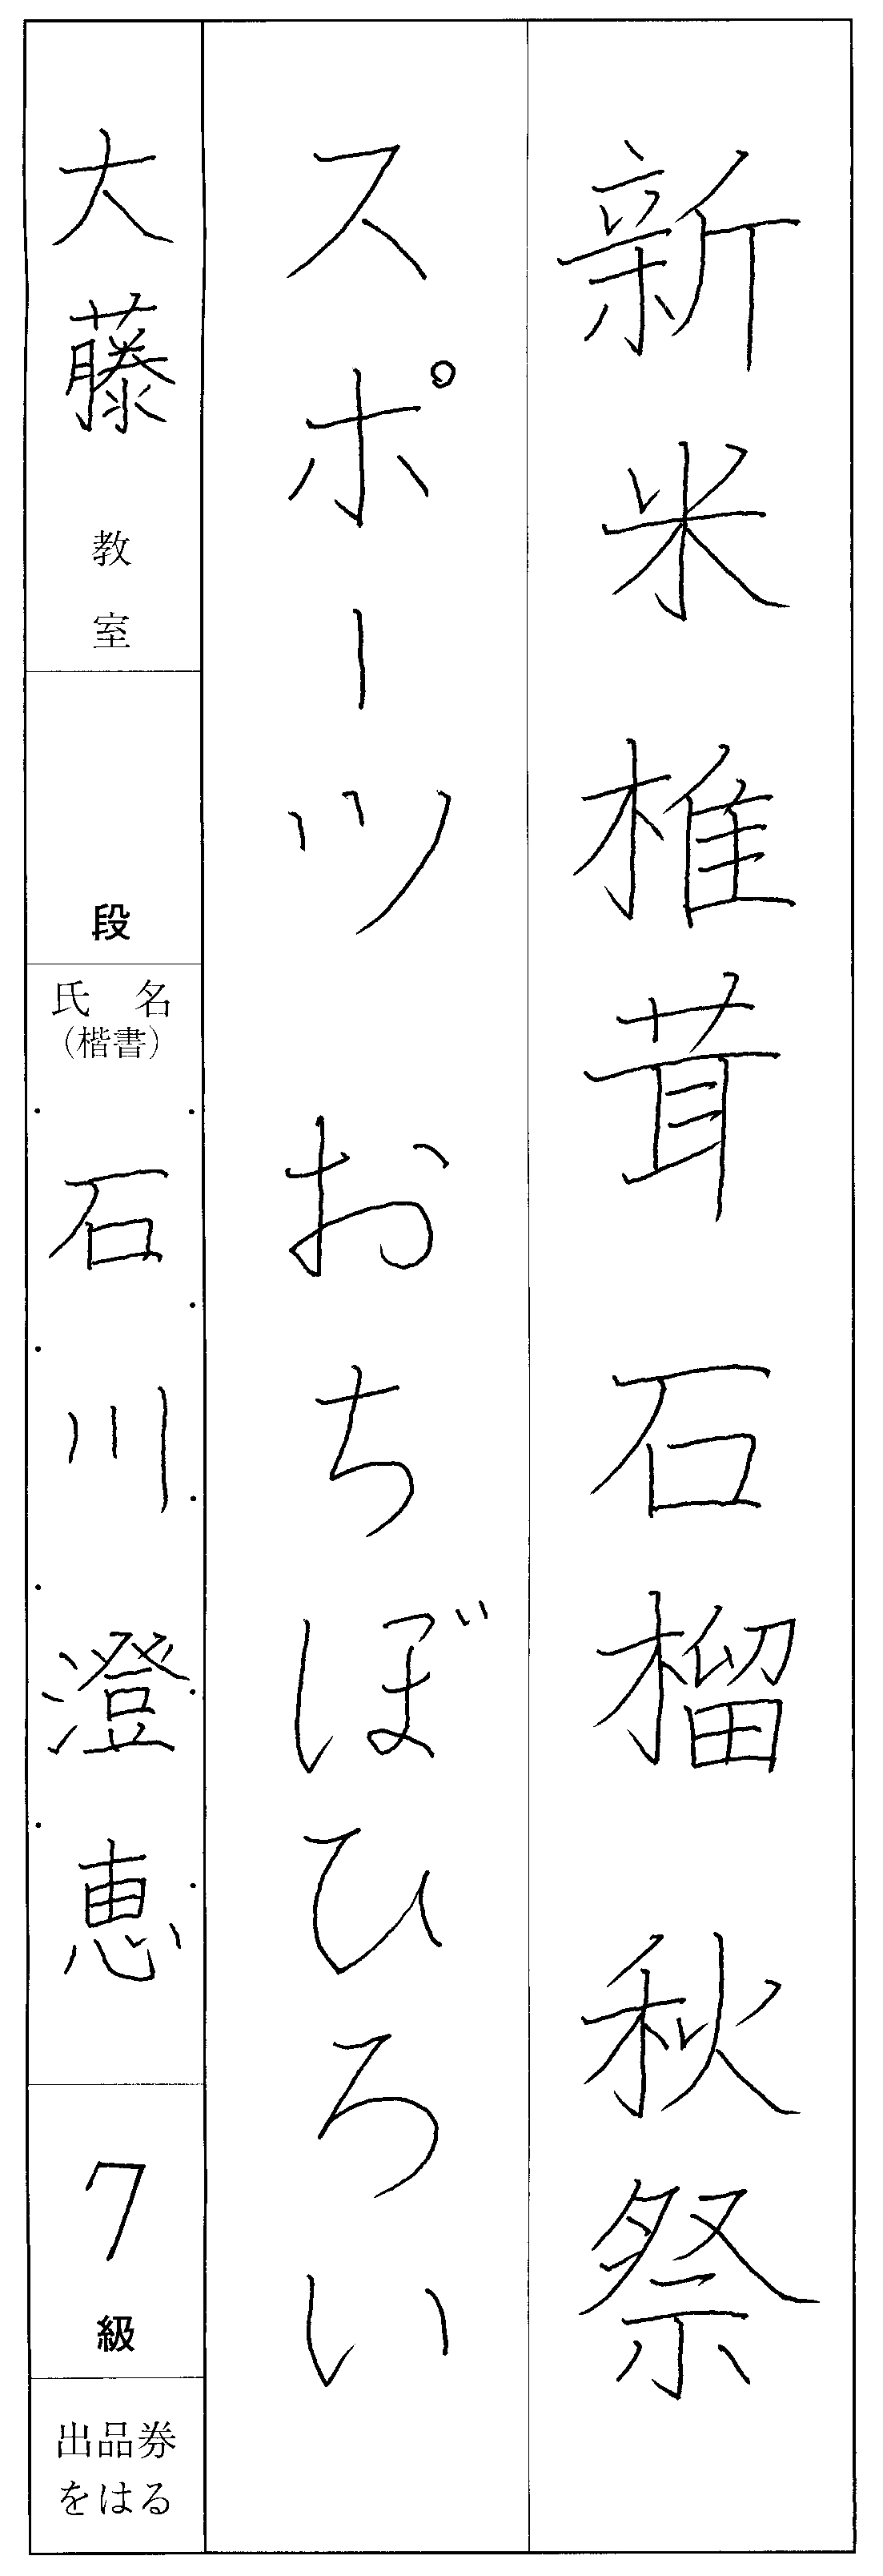 新米 椎茸 石榴 秋祭
スポーツ おちぼひろい
大藤 教室
段
氏名
（楷書）
石川澄恵
7級
出品券
をはる